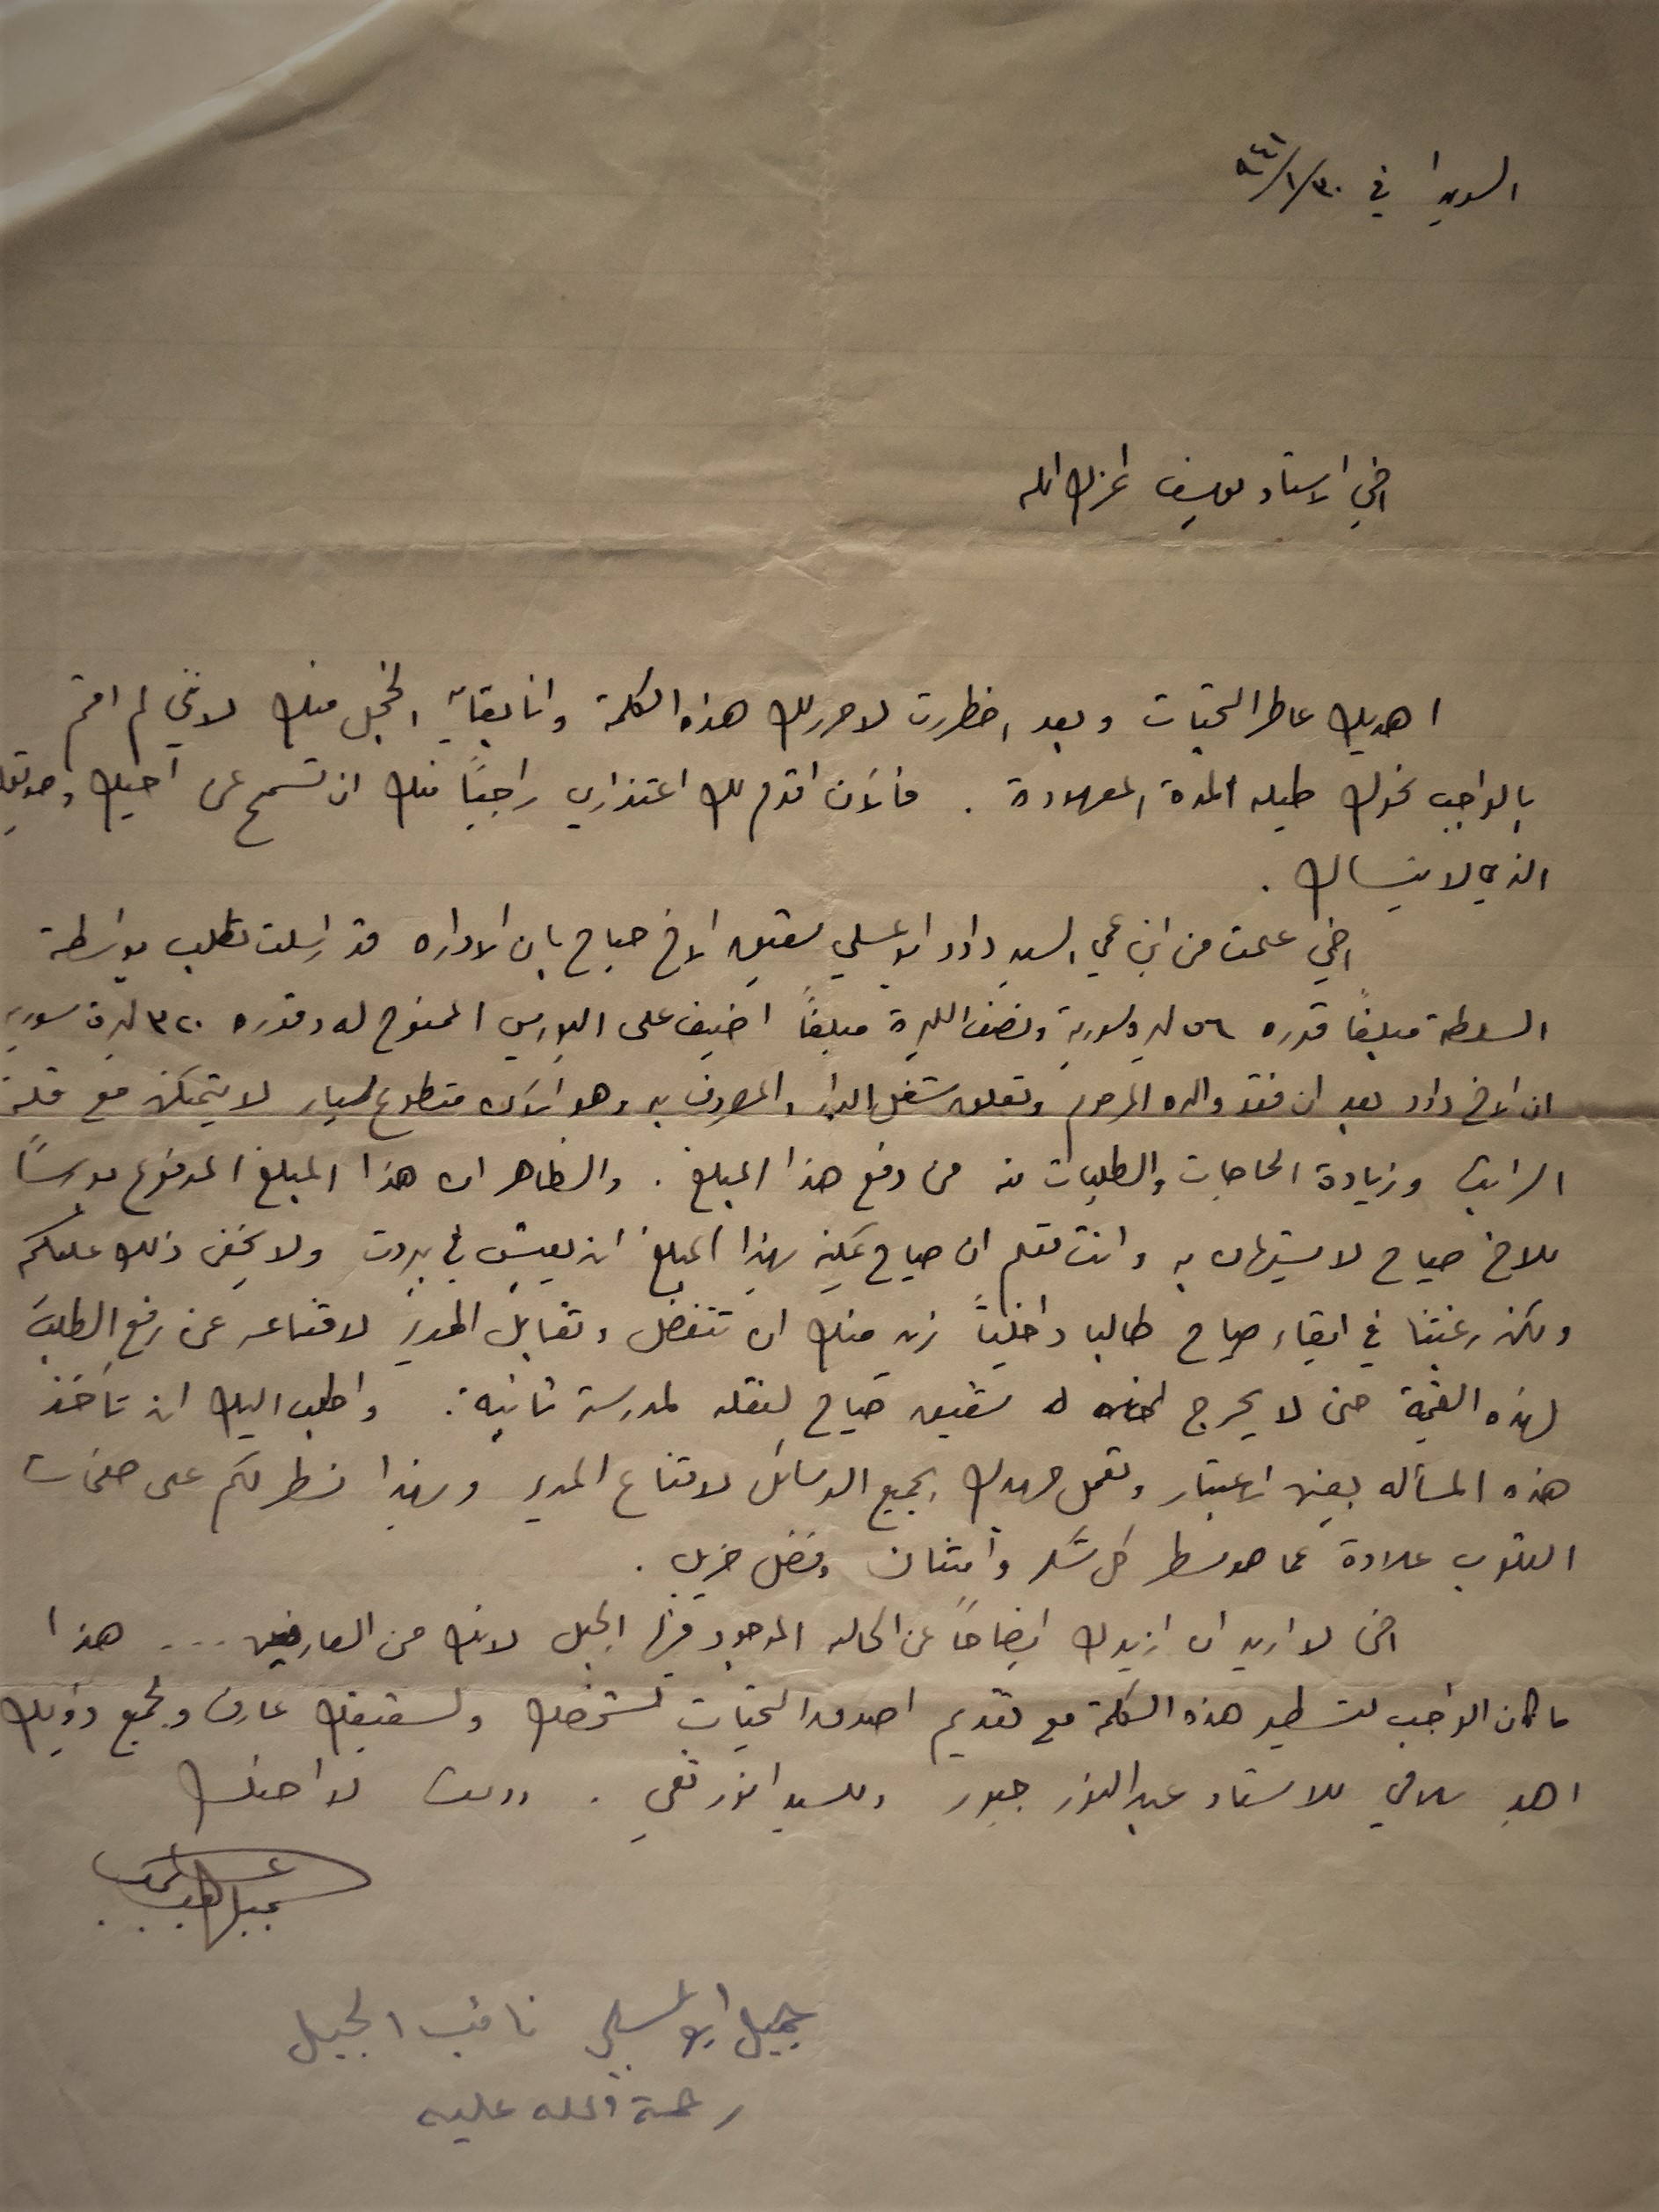 السويدا في ٣٠/١/٩٤١
اخي الاستاذ يوسف اعزك الله
اهديك عاطر التحيات وبعد اضطررت لاحرر لك هذه الكلمة وانا بغاية الخجل منك لانني لم اقم
بالواجب نحوك طيله المدة المعهودة . فالآن اقدم لك اعتذاري راجياً منك ان تسمح عن اخيك وصديقك
الذي لا ينساك .
اخي علمت من ابن عمي السيد داود ابو عسلي شقيق الاخ صياح بان الاداره قد ارسلت تطلب بواسطة
السلطة مبلغاً قدره ٥٦ ليره سورية ونصف الليرة مبلغاً اضيف على البورس الممنوح له وقدره ٣٢٠ ليرة سورية
ان الاخ داود بعد ان فقد والده المرحوم وتعلق شغل الدار والمصروف به وهو الآن متطوع لا يتمكن مع قلة
الراتب وزيادة الحاجات والطلبات منه من دفع هذا المبلغ . والظاهر ان هذا المبلغ المدفوع بورساً
للاخ صياح لا يستهان به وانت تعلم ان صياح يمكنه بهذا المبلغ ان يعيش في بيروت ولا يخفى ذلك عليكم
ولكن رغبتنا في ابقاء صياح طالبا داخلياً نريد منك ان تتفضل وتقابل المدير لاقناعه عن رفع الطلب
لهذه القيمة حتى لا يحرج شقيق صياح لنقله لمدرسة ثانية . واطلب اليك ان تأخذ
هذه المسأله بعين الاعتبار وتعمل جهدك بجميع الوسائل لاقناع المدير وبهذا نسطر لكم على صفحات
القلوب علاوة عما هو مسطر كل شكر وامتنان وفضل جزيل .
اخي لا اريد ان ازيدك ايضاحاً عن الحاله الموجود فيها الجبل لانك من العارفين ... هذا
ما كان الواجب لتسطير هذه الكلمة مع تقديم اصدق التحيات لشخصك ولشقيقك عارف ولجميع ذويك
اهد سلامي للاستاذ عبد النور جبور وللسيد انور تقي . ودمت لاخيك
جميل ابو عسلي نائب الجبل
رحمة الله عليه